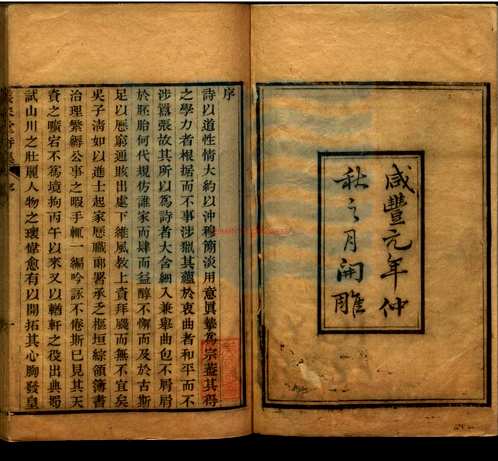 咸豐元年仲
秋之月開雕
序
詩以道性情大約以沖穆簡淡用意眞摯為宗蓋其得
之學力者根据而不事涉獵其蘊於衷曲者和平而不
涉囂張故其所以為詩者大含細入兼舉曲包不屑屑
於胚胎何代規仿誰家而肆而益醇不懈而及於古斯
足以歷窮通賅出處下維風教上賁拜颺而無不宜矣
吳子清如以進士起家歷職郞署承之樞垣綜領簿書
治理繁縟公事之暇手輒一編吟詠不倦斯已見其天
資之曠宕不為境拘丙午以來又以輶軒之役出典蜀
試山川之壯麗人物之瓌偉愈有以開拓其心胸發皇